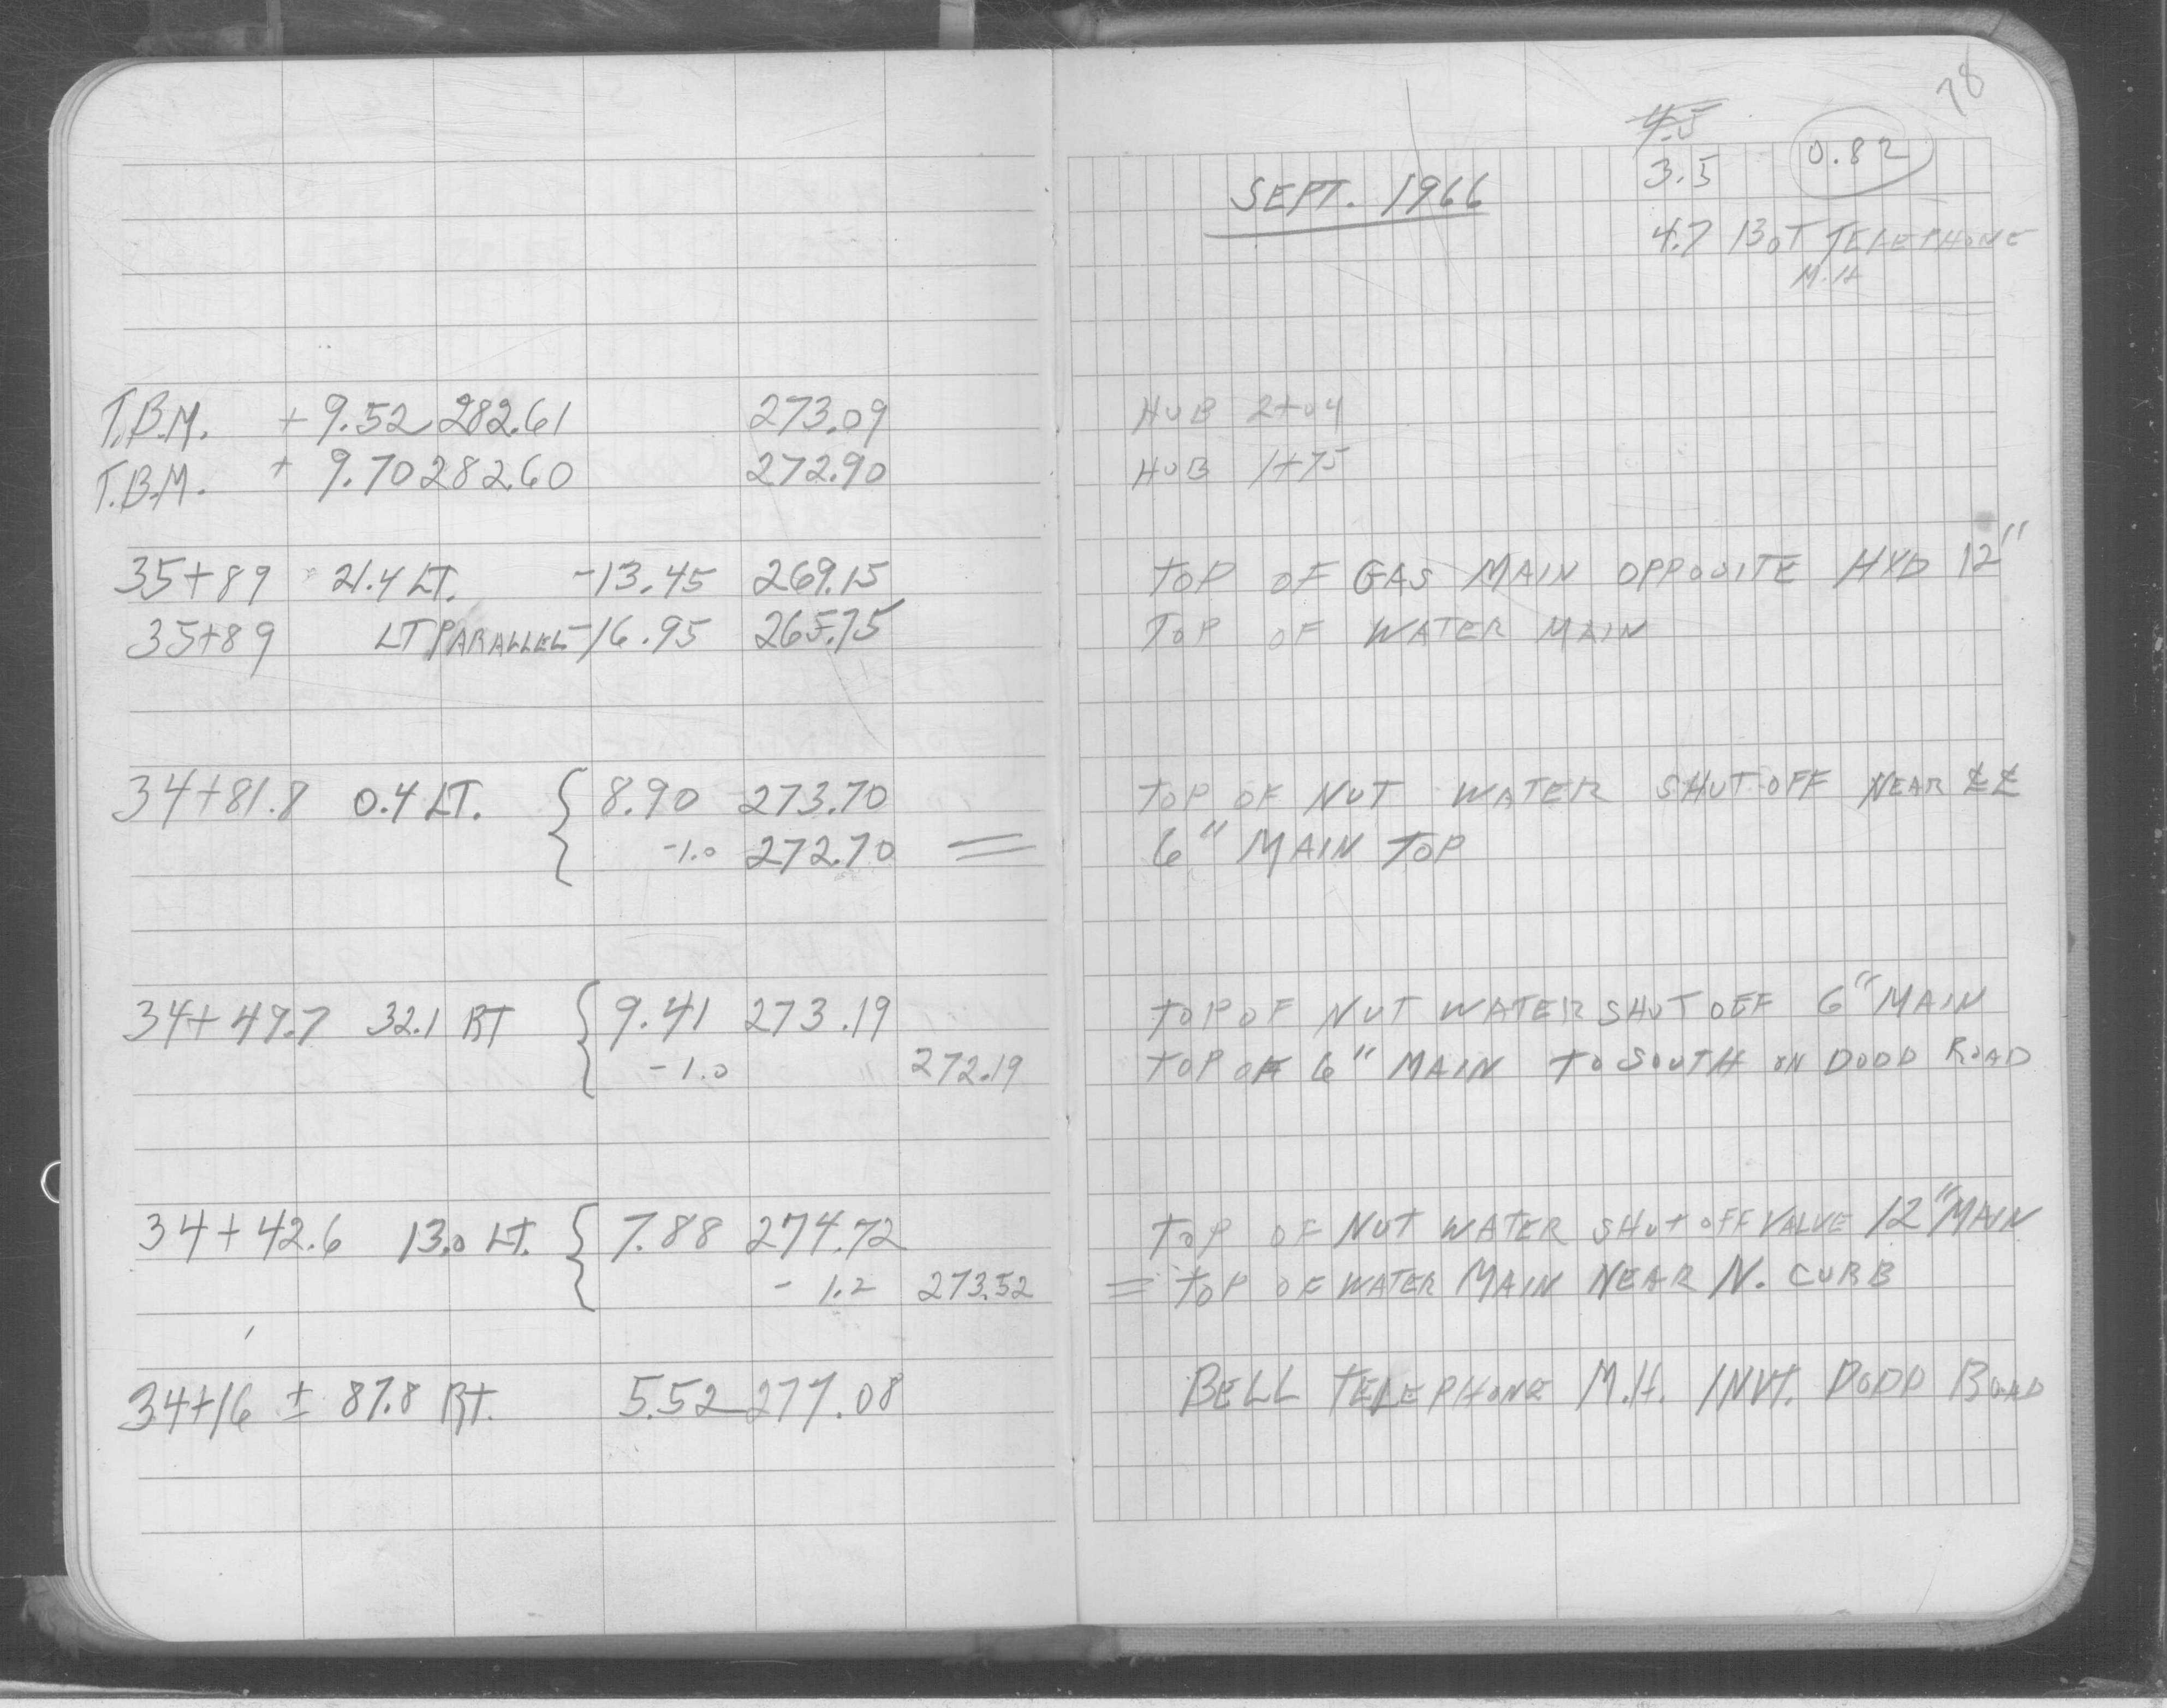 78
4.5
3.5 0.82
SEPT. 1966
4.7 BOT TELEPHONE
M.H
T.B.M. + 9.52 282.61 273.09 HUB 2+04
T.B.M. + 9.70 282.60 272.90 HUB 1+75
35+89 21.4 LT. -13.45 269.15 TOP OF GAS MAIN OPPOSITE HYD 12"
35+89 LT PARALLEL -16.95 265.75 TOP OF WATER MAIN
34+81.8 0.4 LT. { 8.90 273.70 TOP OF NUT WATER SHUT-OFF NEAR
-1.0 272.70 = 6" MAIN TOP
34+49.7 32.1 RT { 9.41 273.19 TOP OF NUT WATER SHUT OFF 6" MAIN
-1.0 272.19 TOP OF 6" MAIN TO SOUTH ON DODD ROAD
34+42.6 13.0 LT. { 7.88 274.72 TOP OF NUT WATER SHUT OFF VALVE 12" MAIN
- 1.2 273.52 = TOP OF WATER MAIN NEAR N. CURB
34+16 ± 87.8 RT. 5.52 277.08 BELL TELEPHONE M.H. INVT. DODD ROAD